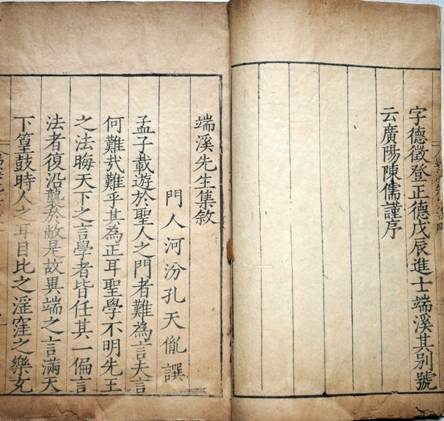 字德徵登正德戊辰進士端溪其別號
云廣陽陳儒謹序
端溪先生集敘
門人河汾孔天胤譔
孟子載遊於聖人之門者難為言夫言
何難哉難乎其為正耳聖學不明先王
之法晦天下之言學者皆任其一偏言
法者復沿襲於敝是故異端之言滿天
下篁鼓時人之耳目比之溼窪之樂尤